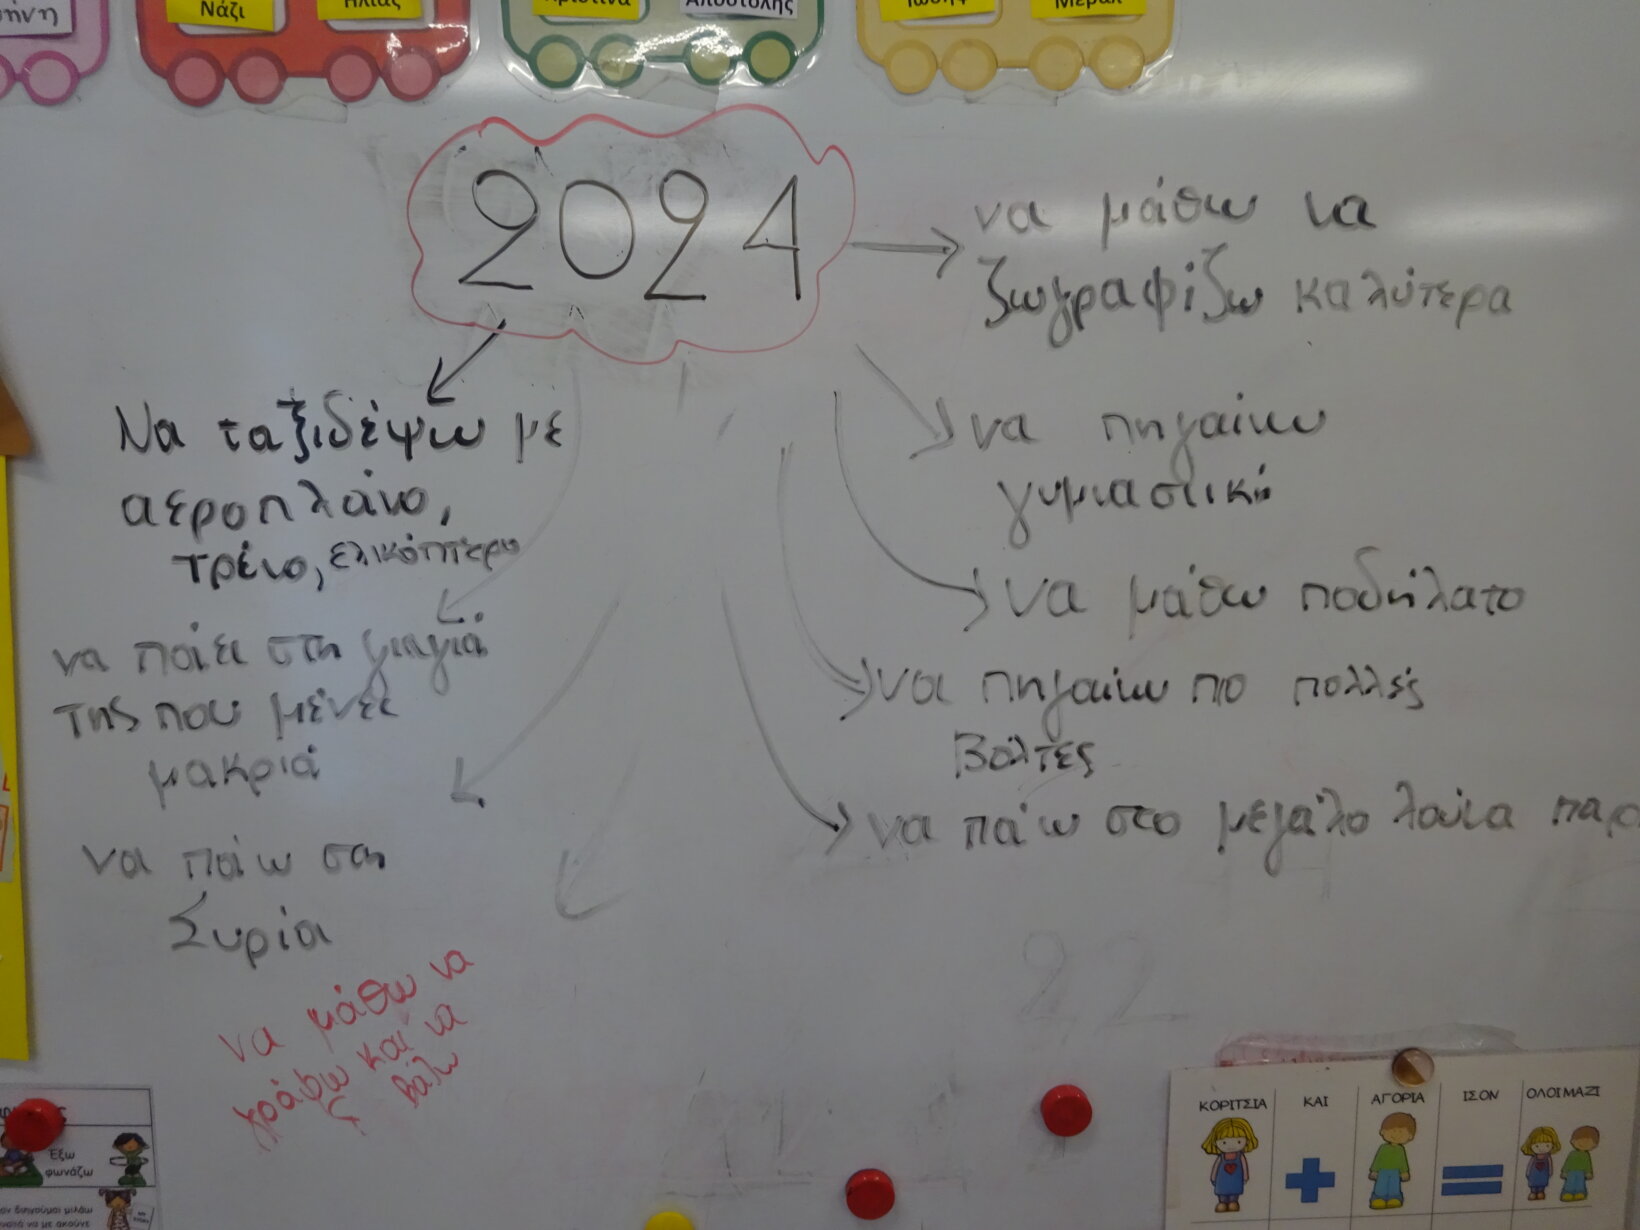 Νάζι
Ηλίας
Χριστίνα
Αποστόλης
Ιωσήφ
2024
να μάθω να
ζωγραφίζω καλύτερα
Να ταξιδέψω με
αεροπλάνο,
τρένο, ελικόπτερο
να πηγαίνω
γυμναστική
να μάθω ποδήλατο
να πάει στη γιαγιά
της που μένει
μακριά
να πηγαίνω πιο πολλές
βόλτες
να πάω στο μεγάλο λούνα παρ
να πάω στη
Συρία
να μάθω να
γράφω και να
βάλω
22
ΚΟΡΙΤΣΙΑ ΚΑΙ ΑΓΟΡΙΑ ΙΣΟΝ ΟΛΟΙ ΜΑΖΙ
+ =
Έξω
φωνάζω